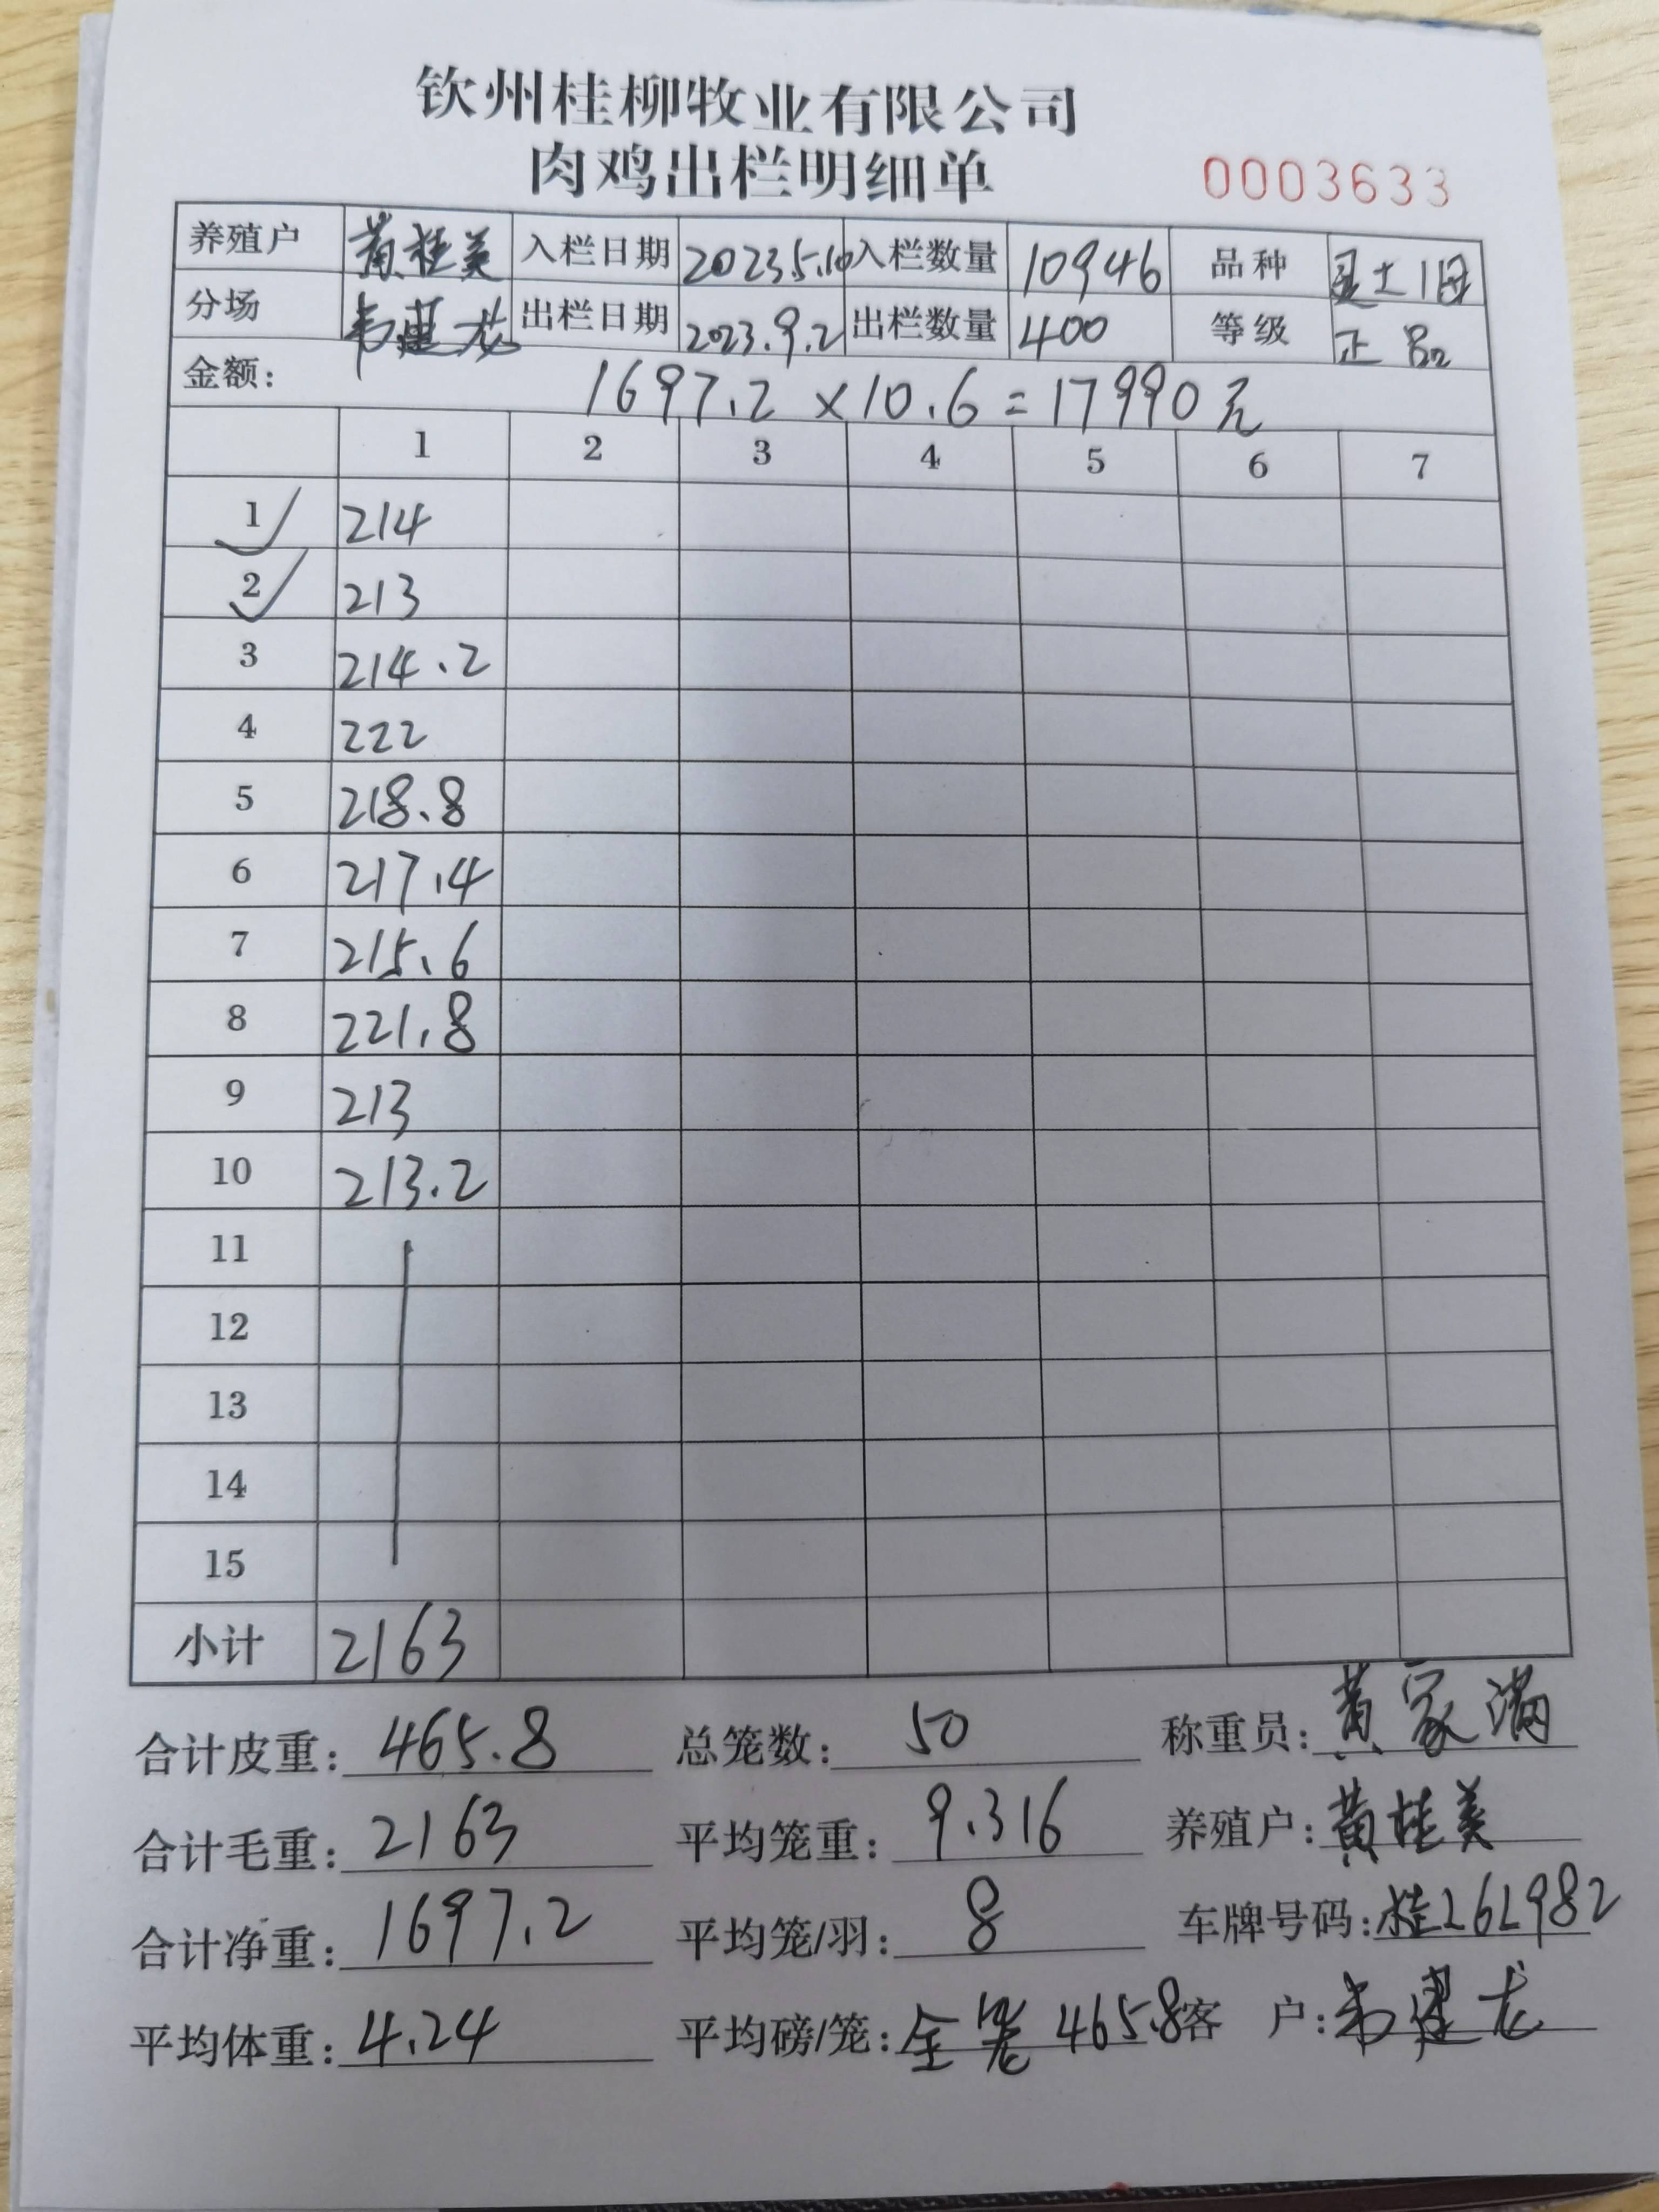 钦州桂柳牧业有限公司
肉鸡出栏明细单 0003633
养殖户 黄桂美 入栏日期 2023.5.10 入栏数量 10946 品种 土1母
分场 韦建龙 出栏日期 2023.9.2 出栏数量 400 等级 正品
金额: 1697.2×10.6=17990元
1 2 3 4 5 6 7
1 214
2 213
3 214.2
4 222
5 218.8
6 217.4
7 215.6
8 221.8
9 213
10 213.2
11
12
13
14
15
小计 2163
合计皮重: 465.8 总笼数: 50 称重员: 黄家满
合计毛重: 2163 平均笼重: 9.316 养殖户: 黄桂美
合计净重: 1697.2 平均笼/羽: 8 车牌号码: 桂L6L982
平均体重: 4.24 平均磅/笼: 全笼 465.8 客 户: 韦建龙